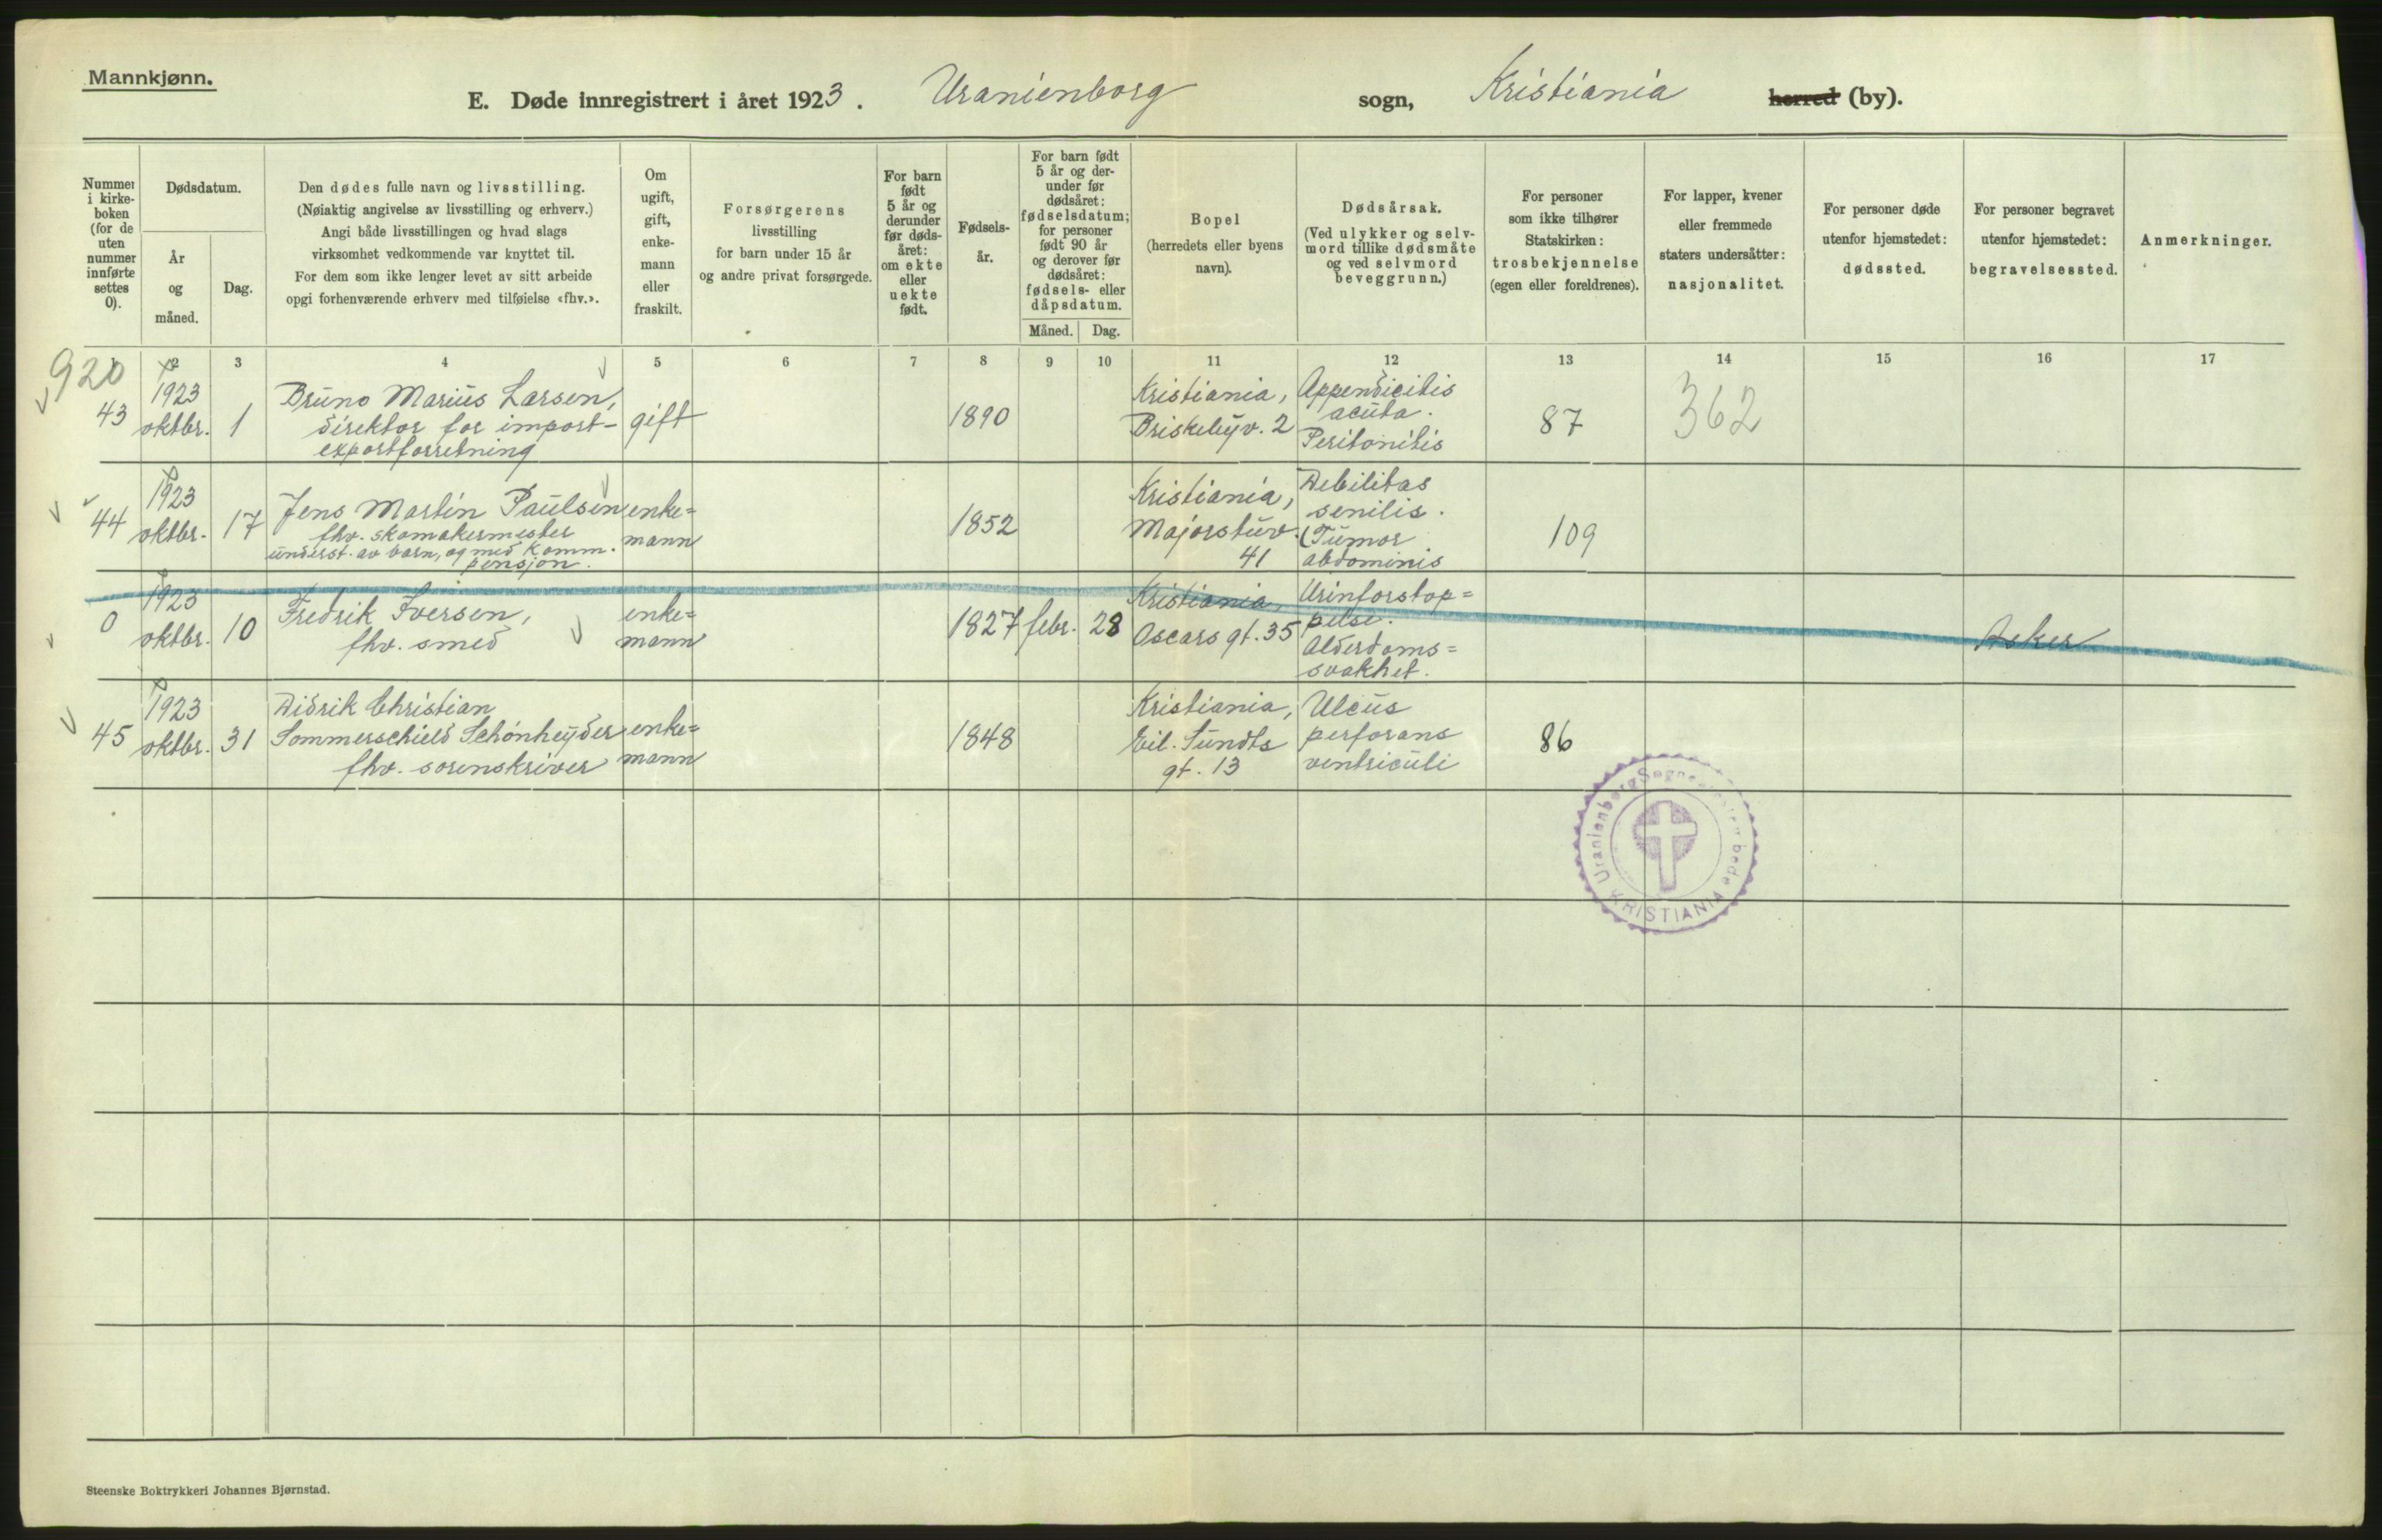 Mannkjønn.
E. Døde innregistrert i året 1923. Uranienborg sogn, Kristiania herred (by).
Nummer i kirkeboken (for de uten nummer innførte settes 0).
Dødsdatum.
År og måned.
Dag.
Den dødes fulle navn og livsstilling.
(Nøiaktig angivelse av livsstilling og erhverv.)
Angi både livsstillingen og hvad slags
virksomhet vedkommende var knyttet til.
For dem som ikke lenger levet av sitt arbeide
opgi forhenværende erhverv med tilføielse «fhv.».
Om
ugift,
gift,
enke-
mann
eller
fraskilt.
Forsørgerens
livsstilling
for barn under 15 år
og andre privat forsørgede.
For barn
født
5 år og
derunder
før døds-
året:
om ekte
eller
uekte
født.
Fødsels-
år.
For barn født
5 år og der-
under før
dødsåret:
fødselsdatum;
for personer
født 90 år
og derover før
dødsåret:
fødsels- eller
dåpsdatum.
Måned. Dag.
Bopel
(herredets eller byens
navn).
Dødsårsak.
(Ved ulykker og selv-
mord tillike dødsmåte
og ved selvmord
beveggrunn.)
For personer
som ikke tilhører
Statskirken:
trosbekjennelse
(egen eller foreldrenes).
For lapper, kvener
eller fremmede
staters undersåtter:
nasjonalitet.
For personer døde
utenfor hjemstedet:
dødssted.
For personer begravet
utenfor hjemstedet:
begravelsessted.
Anmerkninger.
2 3 4 5 6 7 8 9 10 11 12 13 14 15 16 17
920
43
1923
oktbr. 1
Bruno Marius Larsen,
direktør for import-
exportforretning
gift
1890
Kristiania,
Briskebyv. 2
Appendicitis
acuta.
Peritonitis
87
362
44
1923
oktbr. 17
Jens Martin Paulsen
fhv. skomakermester
underst. av barn, og med Komm.
pensjon.
enke=
mann
1852
Kristiania,
Majorstuv.
41
Debilitas
senilis.
(Tumor
abdominis
109
0
1923
oktbr. 10
Fredrik Iversen,
fhv. smed
enke=
mann
1827 febr. 28
Kristiania,
Oscars gt. 35
Urinforstop=
pelse.
Alderdoms=
svakhet.
Asker
45
1923
oktbr. 31
Didrik Christian
Sommerschield Schönheyder
fhv. sorenskriver
enke=
mann
1848
Kristiania,
Eil. Sundts
gt. 13
Ulcus
perforans
ventriculi
86
Uranienborg
KRISTIANIA
Steenske Boktrykkeri Johannes Bjørnstad.